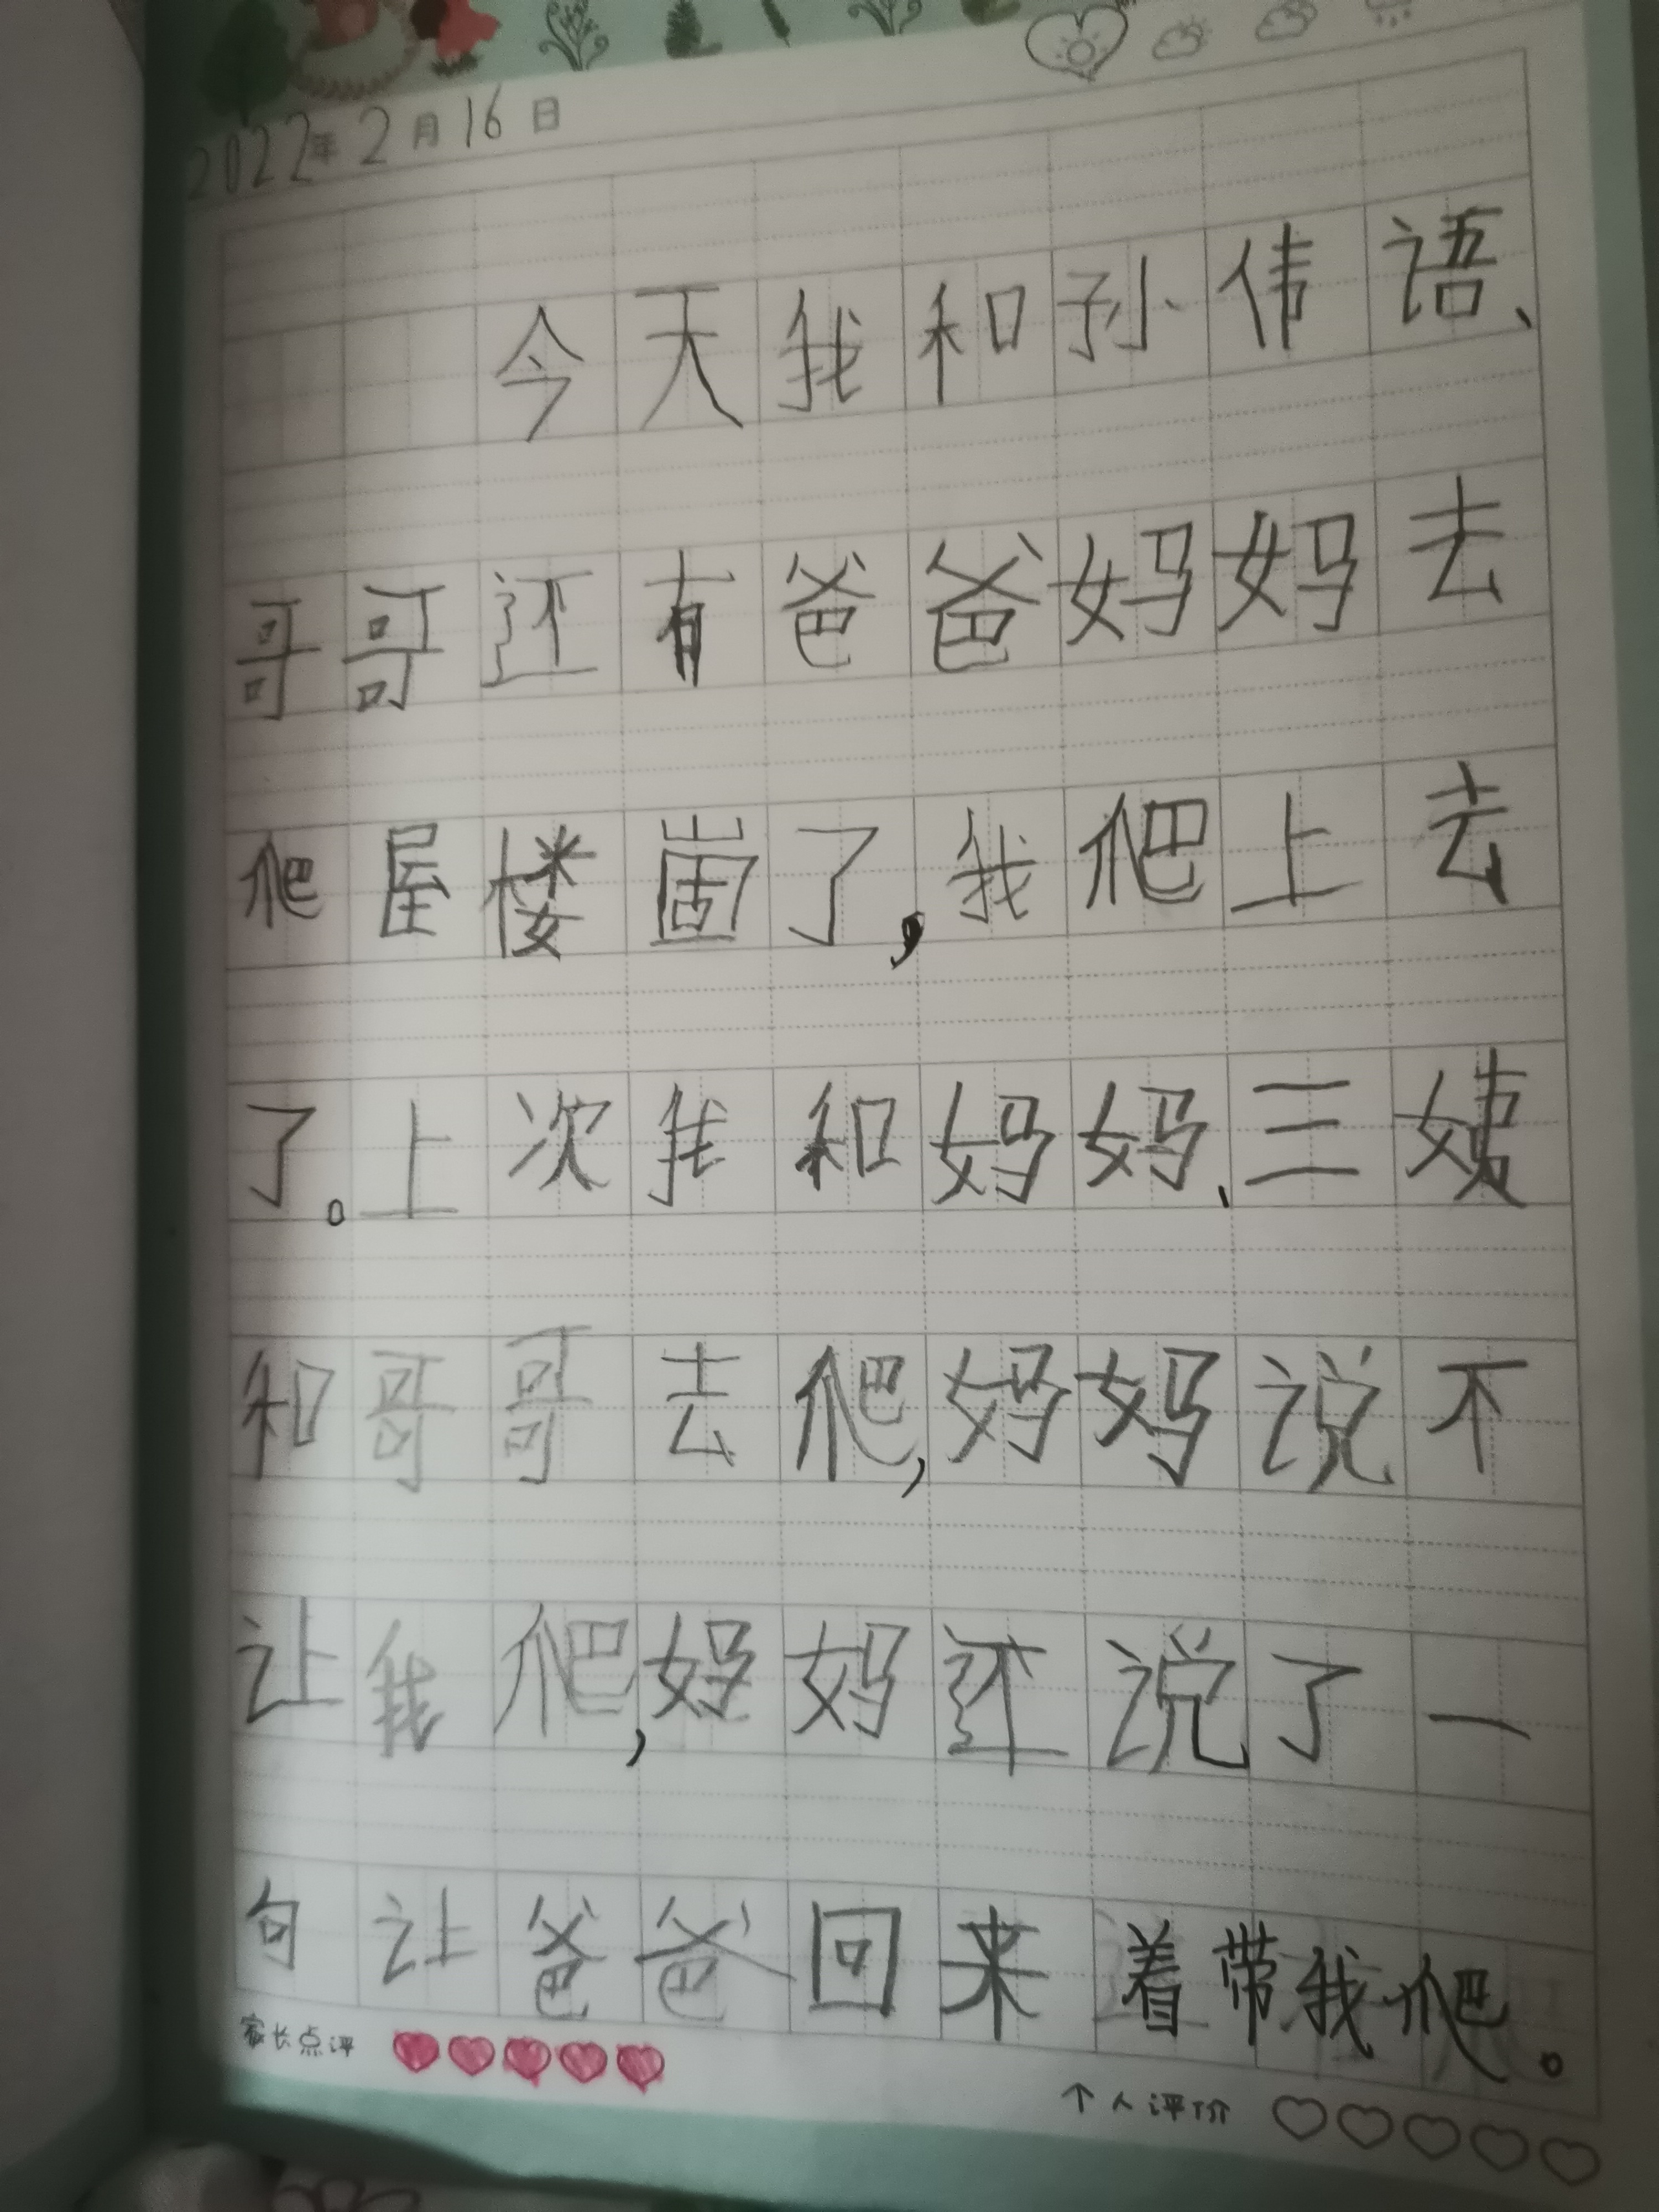 2022年2月16日
今天我和孙伟语、
哥哥还有爸爸妈妈去
爬屋楼崮了，我爬上去
了。上次我和妈妈、三姨
和哥哥去爬，妈妈说不
让我爬，妈妈还说了一
句让爸爸回来着带我爬。
家长点评
个人评价